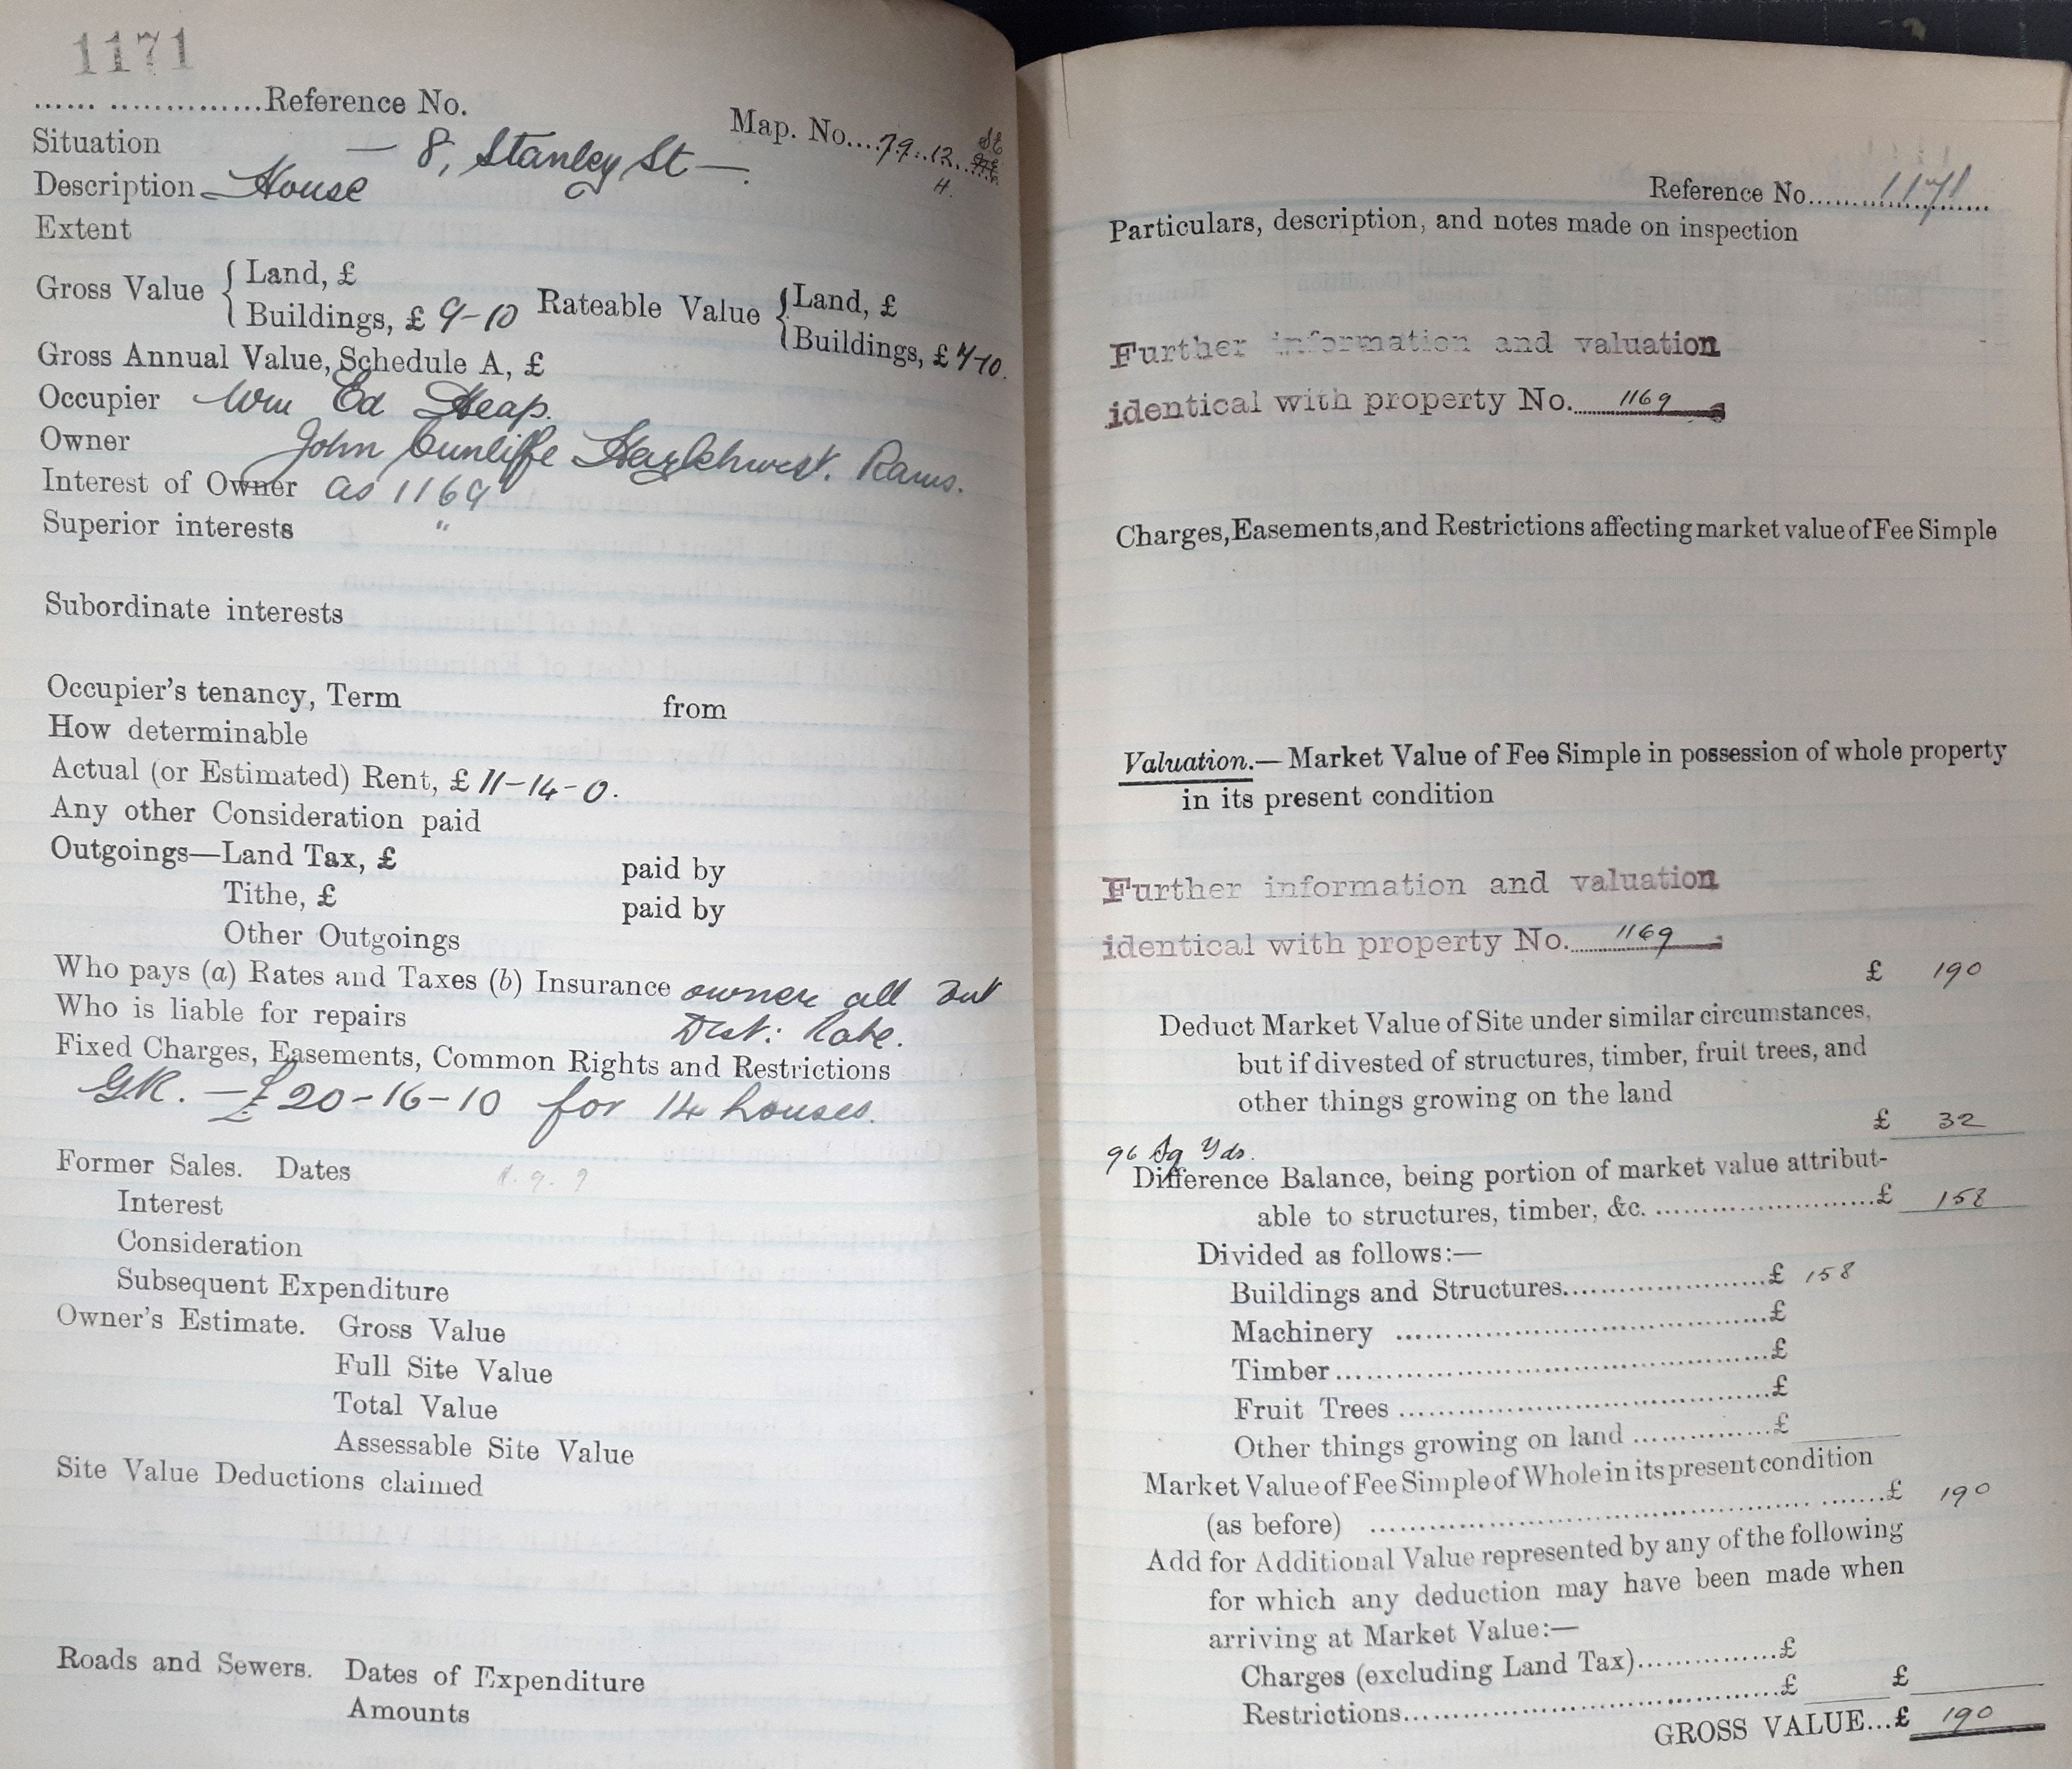 1171
...... ..............Reference No.
Map. No....79..12.. St
H.
Situation — 8, Stanley St —.
Description House
Extent
Gross Value { Land, £
Buildings, £ 9-10 Rateable Value { Land, £
Buildings, £ 7-10.
Gross Annual Value, Schedule A, £
Occupier Wm Ed Heap.
Owner John Cunliffe Hazlehurst. Rams.
Interest of Owner as 1169
Superior interests "
Subordinate interests
Occupier's tenancy, Term from
How determinable
Actual (or Estimated) Rent, £ 11-14-0.
Any other Consideration paid
Outgoings—Land Tax, £ paid by
Tithe, £ paid by
Other Outgoings
Who pays (a) Rates and Taxes (b) Insurance owner all but
Who is liable for repairs Dist: Rate.
Fixed Charges, Easements, Common Rights and Restrictions
GR. — £20-16-10 for 14 houses.
Former Sales. Dates
Interest
Consideration
Subsequent Expenditure
Owner's Estimate. Gross Value
Full Site Value
Total Value
Assessable Site Value
Site Value Deductions claimed
Roads and Sewers. Dates of Expenditure
Amounts
Reference No. 1171
Particulars, description, and notes made on inspection
Further information and valuation
identical with property No. 1169
Charges, Easements, and Restrictions affecting market value of Fee Simple
Valuation.—Market Value of Fee Simple in possession of whole property
in its present condition
Further information and valuation
identical with property No. 1169
£ 190
Deduct Market Value of Site under similar circumstances,
but if divested of structures, timber, fruit trees, and
other things growing on the land
£ 32
96 Sq Yds.
Difference Balance, being portion of market value attribut-
able to structures, timber, &c. ........................£ 158
Divided as follows:—
Buildings and Structures......................£ 158
Machinery ........................................£
Timber.............................................£
Fruit Trees ......................................£
Other things growing on land ...............£
Market Value of Fee Simple of Whole in its present condition
(as before) ................................................£ 190
Add for Additional Value represented by any of the following
for which any deduction may have been made when
arriving at Market Value:—
Charges (excluding Land Tax)...............£
Restrictions.......................................£ £
GROSS VALUE...£ 190